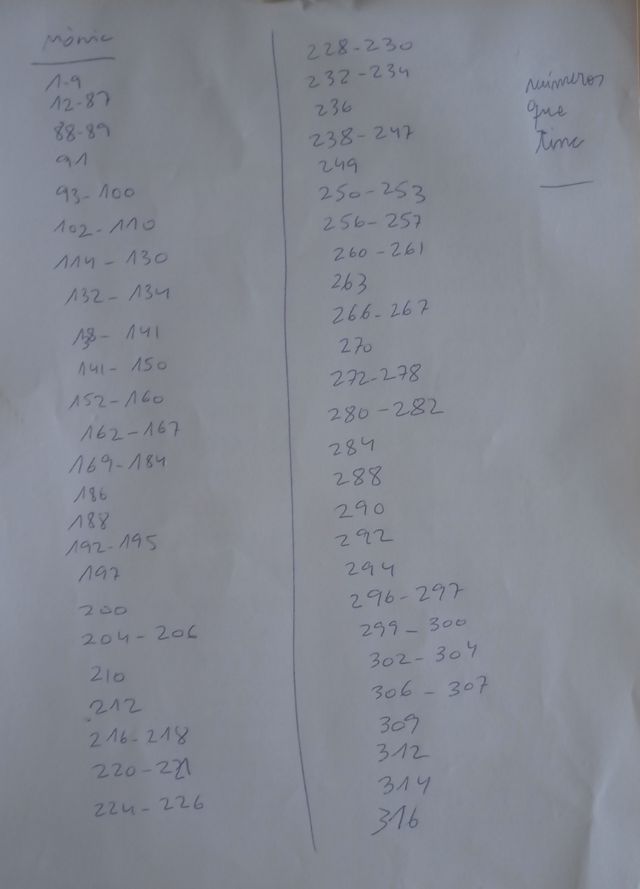 mònic
1-9
12-87
88-89
91
93-100
102-110
114-130
132-134
141
141-150
152-160
162-167
169-184
186
188
192-195
197
200
204-206
210
212
216-218
220-221
224-226
228-230
232-234
236
238-247
249
250-253
256-257
260-261
263
266-267
270
272-278
280-282
284
288
290
292
294
296-297
299-300
302-304
306-307
309
312
314
316
números
que
tinc